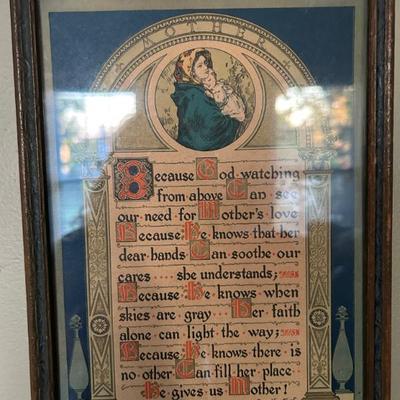 MOTHER
Because God watching
from above Can see
our need for Mother's love
Because He knows that her
dear hands Can soothe our
cares .... she understands;
Because He knows when
skies are gray .. Her faith
alone can light the way;
Because He knows there is
no other Can fill her place ..
He gives us Mother!